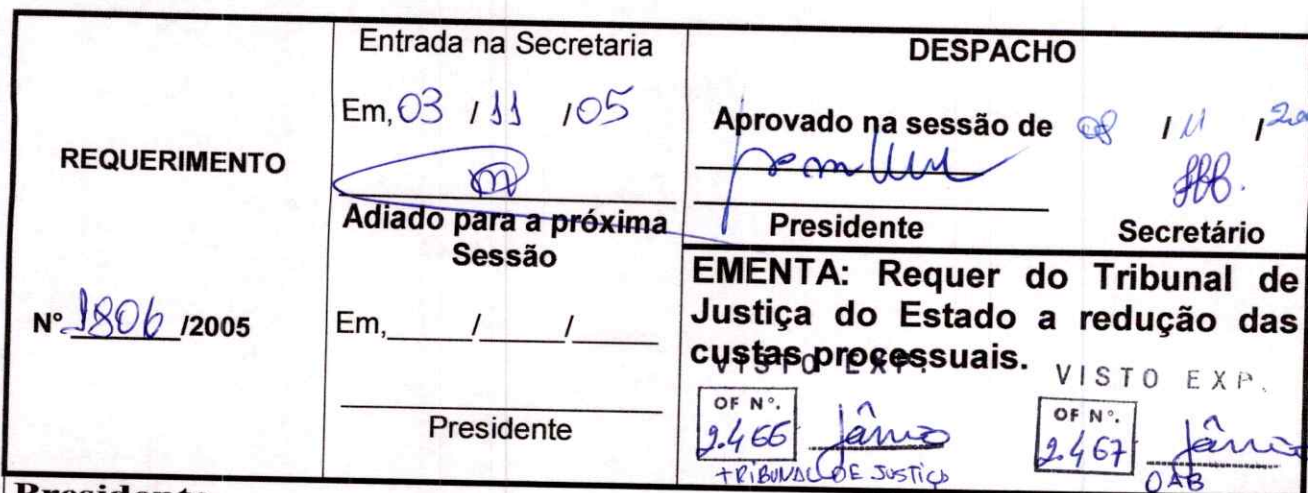 REQUERIMENTO
Nº 1806 /2005
Entrada na Secretaria
Em, 03 / 11 / 05
Adiado para a próxima
Sessão
Em,_____/_____/_____
Presidente
DESPACHO
Aprovado na sessão de 08 / 11 /
Presidente Secretário
EMENTA: Requer do Tribunal de
Justiça do Estado a redução das
custas processuais.
VISTO EXP.
OF Nº.
2.466 Jânio
TRIBUNAL DE JUSTIÇA
VISTO EXP.
OF Nº.
2.467 Jânio
OAB